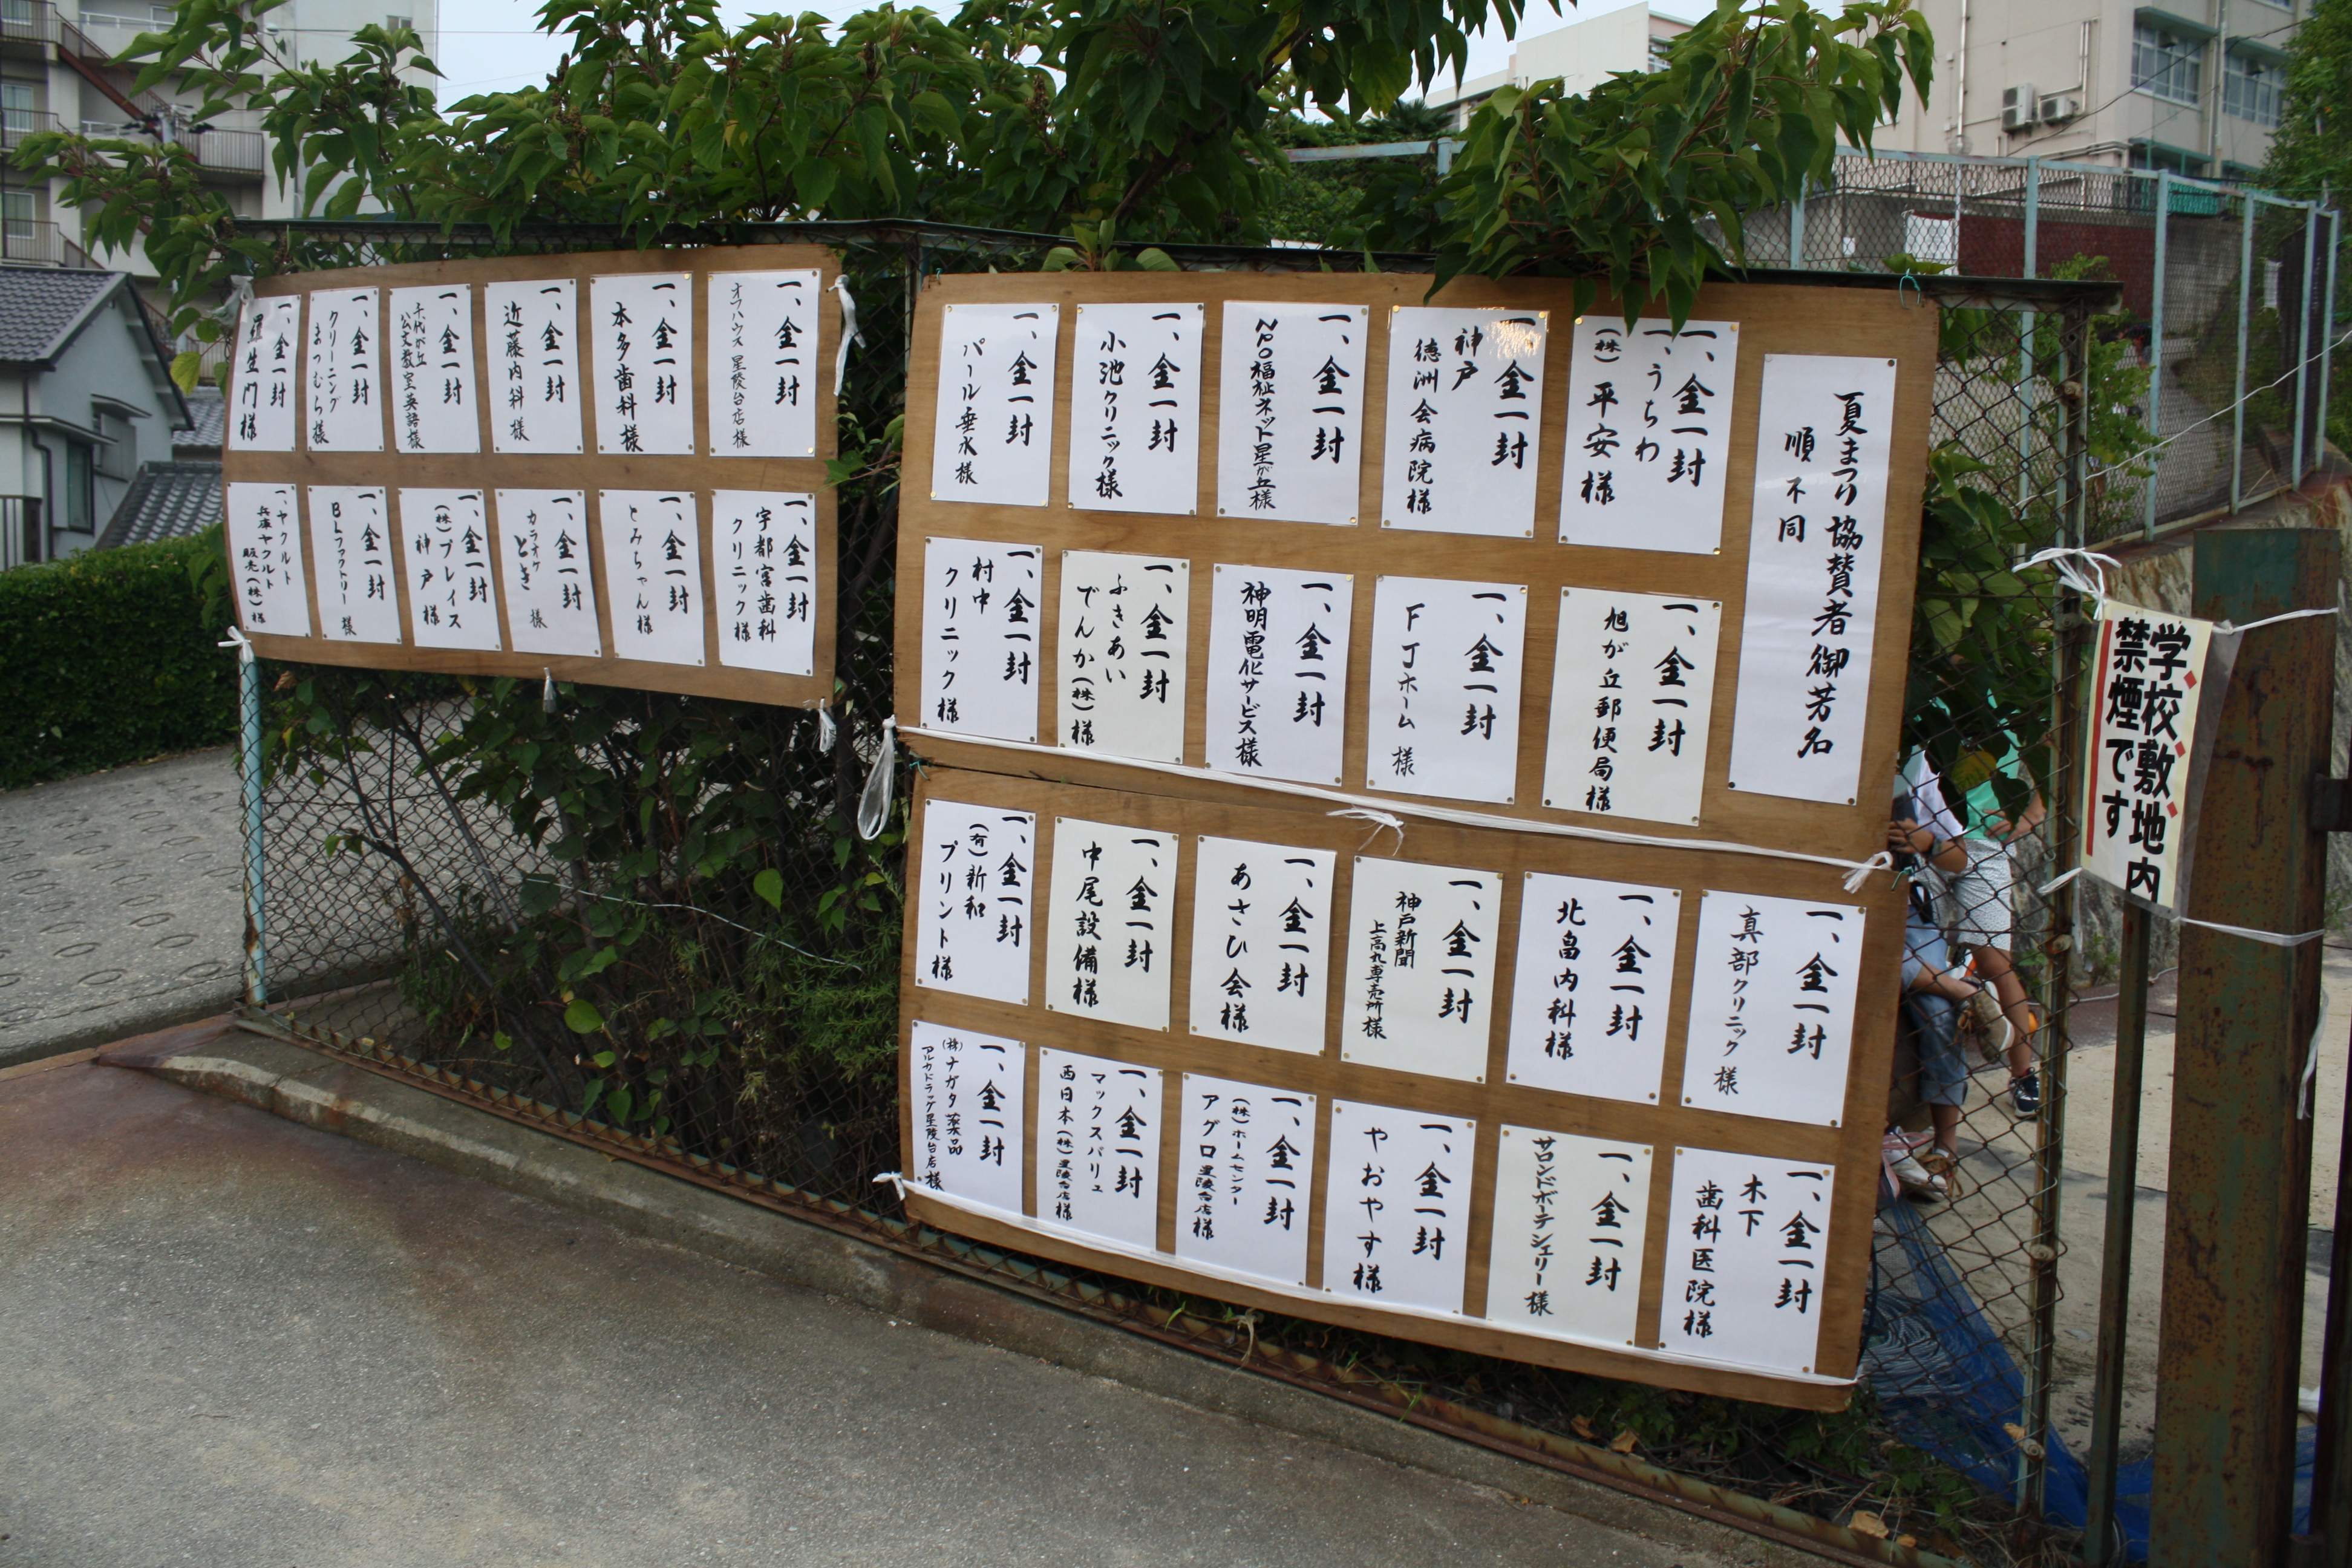 夏まつり協賛者御芳名
順不同
一、金一封
一、うちわ
(株)平安様
一、金一封
神戸
徳洲会病院様
一、金一封
NPO福祉ネット星が丘様
一、金一封
小池クリニック様
一、金一封
パール垂水様
一、金一封
旭が丘郵便局様
一、金一封
FJホーム様
一、金一封
神明電化サービス様
一、金一封
ふきあい
でんか(株)様
一、金一封
村中
クリニック様
一、金一封
真部クリニック様
一、金一封
北畠内科様
一、金一封
神戸新聞
上高丸専売所様
一、金一封
あさひ会様
一、金一封
中尾設備様
一、金一封
(有)新和
プリント様
一、金一封
木下
歯科医院様
一、金一封
サロンドボーテシェリー様
一、金一封
やおやす様
一、金一封
(株)ホームセンター
アグロ星陵台店様
一、金一封
マックスバリュ
西日本(株)星陵台店様
一、金一封
(株)ナガタ薬品
アルカドラッグ星陵台店様
一、金一封
オフハウス星陵台店様
一、金一封
本多歯科様
一、金一封
近藤内科様
一、金一封
千代が丘
公文教室英語様
一、金一封
クリーニング
まつむら様
一、金一封
羅生門様
一、金一封
宇都宮歯科
クリニック様
一、金一封
とみちゃん様
一、金一封
カラオケ
とき様
一、金一封
(株)プレイス
神戸様
一、金一封
BLファクトリー様
一、ヤクルト
兵庫ヤクルト
販売(株)様
学校敷地内
禁煙です